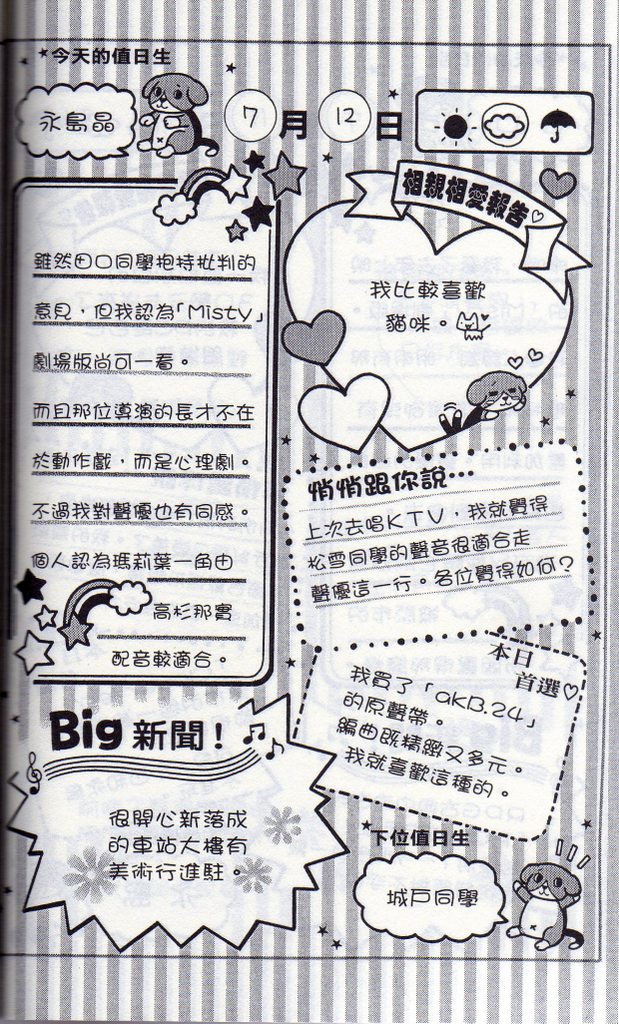 ★今天的值日生
永島晶
7月12日
雖然田口同學抱持批判的
意見，但我認為「Misty」
劇場版尚可一看。
而且那位導演的長才不在
於動作戲，而是心理劇。
不過我對聲優也有同感。
個人認為瑪莉葉一角由
高杉那實
配音較適合。
相親相愛報告♡
我比較喜歡
貓咪。
悄悄跟你說…
上次去唱KTV，我就覺得
松雪同學的聲音很適合走
聲優這一行。各位覺得如何？
本日
首選♡
我買了「akB.24」
的原聲帶。
編曲既精緻又多元。
我就喜歡這種的。
Big 新聞！
很開心新落成
的車站大樓有
美術行進駐。
★下位值日生
城戶同學